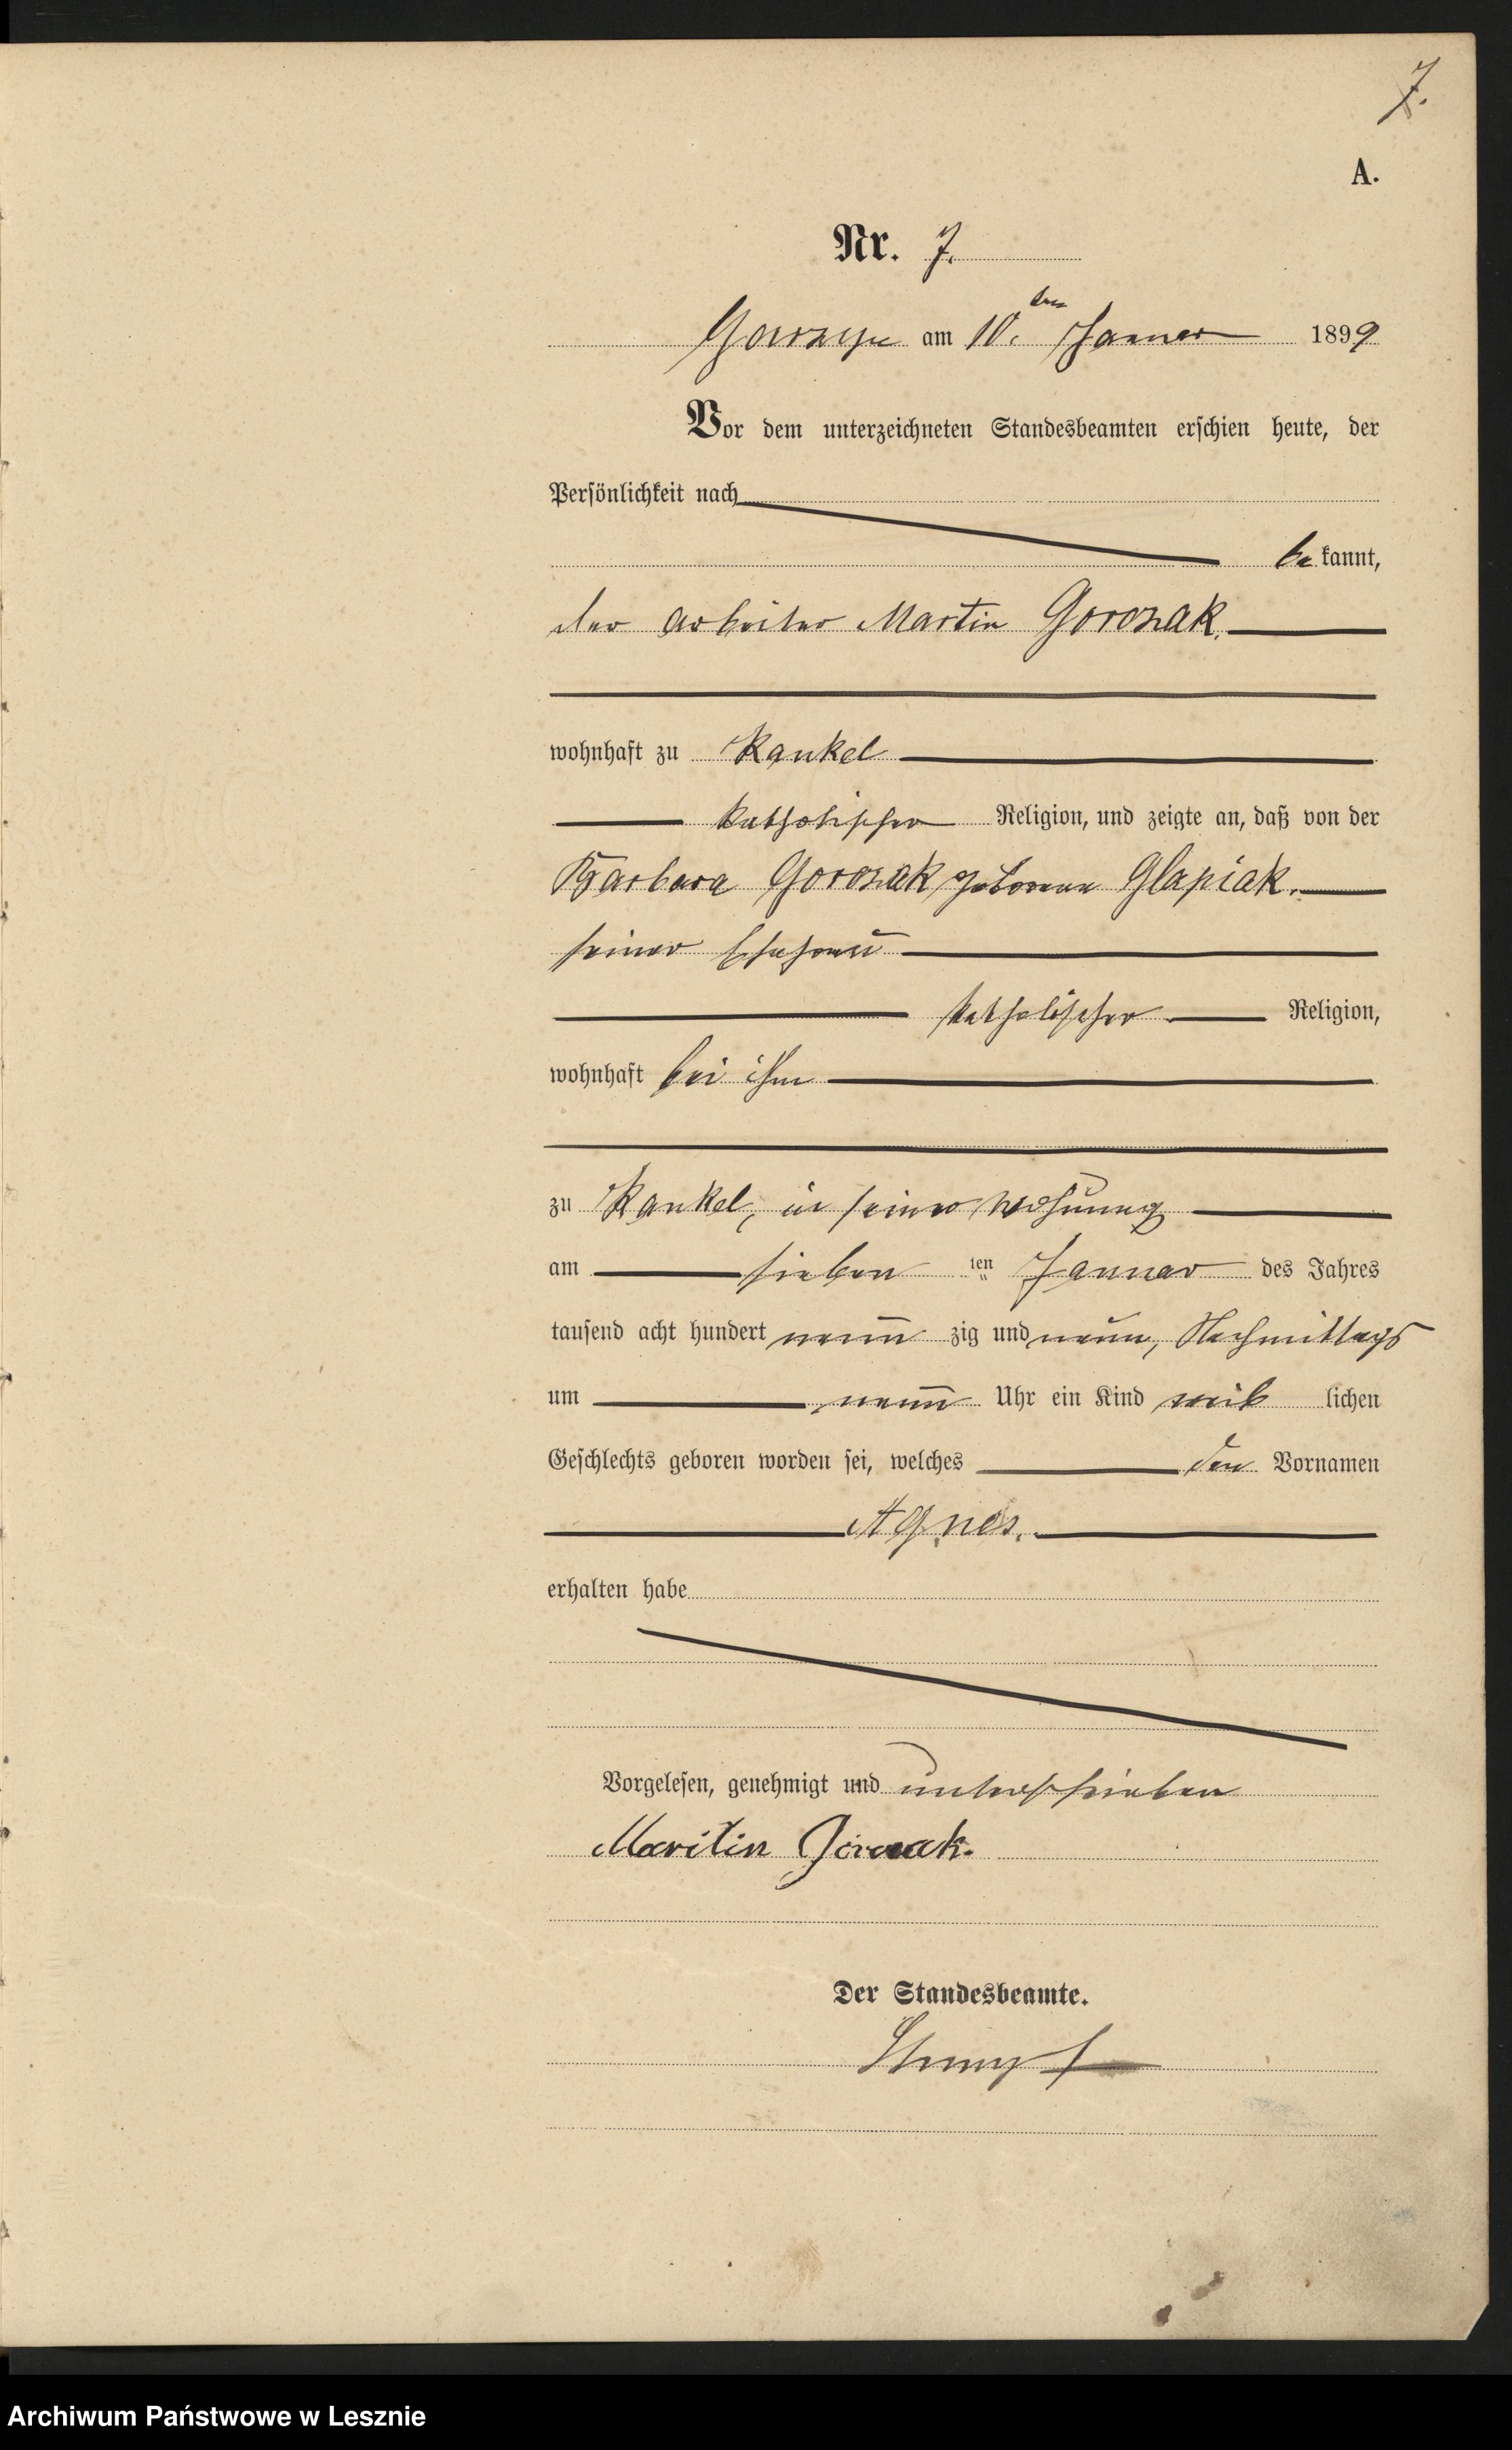 7.
A.
Nr. 7.
am 10. ten Januar 1899
Vor dem unterzeichneten Standesbeamten erschien heute, der
Persönlichkeit nach
be kannt,
der Arbeiter Martin Gorczak.
wohnhaft zu Kankel
katholischer Religion, und zeigte an, daß von der
Barbara Gorczak geborene Glapiak.
seiner Ehefrau
katholischer Religion,
wohnhaft bei ihm
zu Kankel, in seiner Wohnung
am sieben ten Januar des Jahres
tausend acht hundert neun zig und neun, Nachmittags
um neun Uhr ein Kind weib lichen
Geschlechts geboren worden sei, welches den Vornamen
Agnes.
erhalten habe
Vorgelesen, genehmigt und unterschrieben
Der Standesbeamte.
Stumpf
Archiwum Państwowe w Lesznie